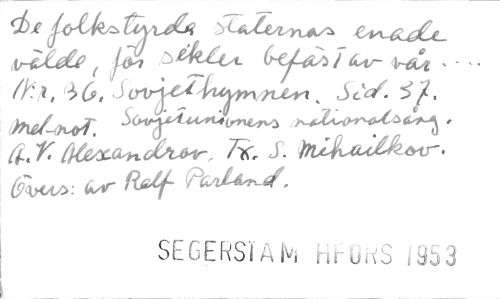 De folkstyrda staternas enade
välde, för sekler befäst av vår....
N:r. 36. Sovjethymnen. Sid. 37.
mel-not. Sovjetunionens nationalsång.
A.V. Alexandrov. Tx. S. Mihailkov.
Övers: av Ralf Parland.
SEGERSTAM HFORS 1953